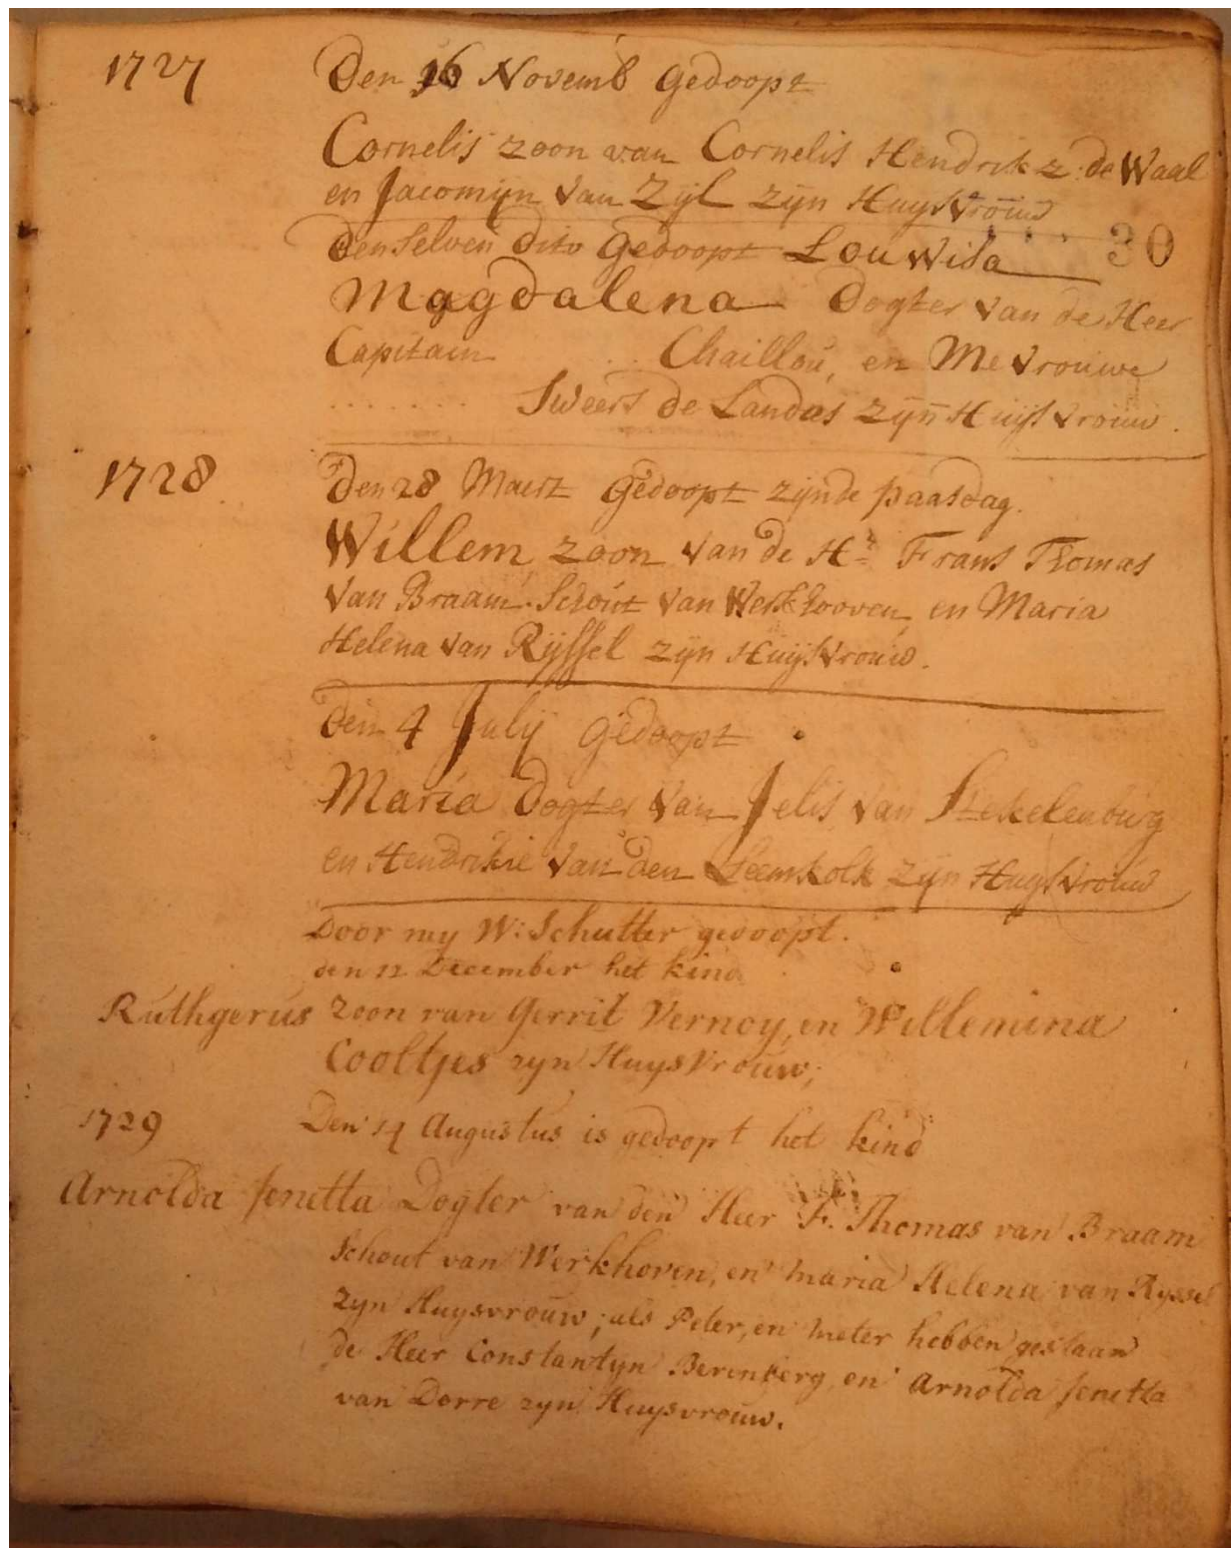 1727 Den 16 Novemb Gedoopt
Cornelis zoon van Cornelis Hendrik z: de Waal
en Jacomijn van Zijl zijn Huijsvrouw
30
den selven dito Gedoopt Louwisa
Magdalena Dogter van de Heer
Capitain Chaillou, en Mevrouwe
........ Sweers de Landas zijn Huijsvrouw.
1728 Den 28 Maert Gedoopt zijnde paasdag.
Willem zoon van de Hr Frans Thomas
van Braam. Schout van Werkhooven en Maria
Helena van Rijssel zijn Huijsvrouw.
Den 4 Julij Gedoopt
Maria Dogter van Jelis van Stekelenburg
en Hendrikie van den Leemkolk zijn Huijsvrouw
Door my W: Schutter gedoopt.
den 12 December het kind
Ruthgerus zoon van Gerrit Vernoy, en Willemina
Cooltjes zyn Huysvrouw;
1729 Den 14 Augustus is gedoopt het kind
Arnolda Jenetta Dogter van den Heer F. Thomas van Braam
Schout van Werkhoven, en Maria Helena van Ryssel
zyn Huysvrouw; als Peter, en meter hebben gestaan
de Heer Constantyn Berenberg, en Arnolda Jenetta
van Dorre zyn Huysvrouw.